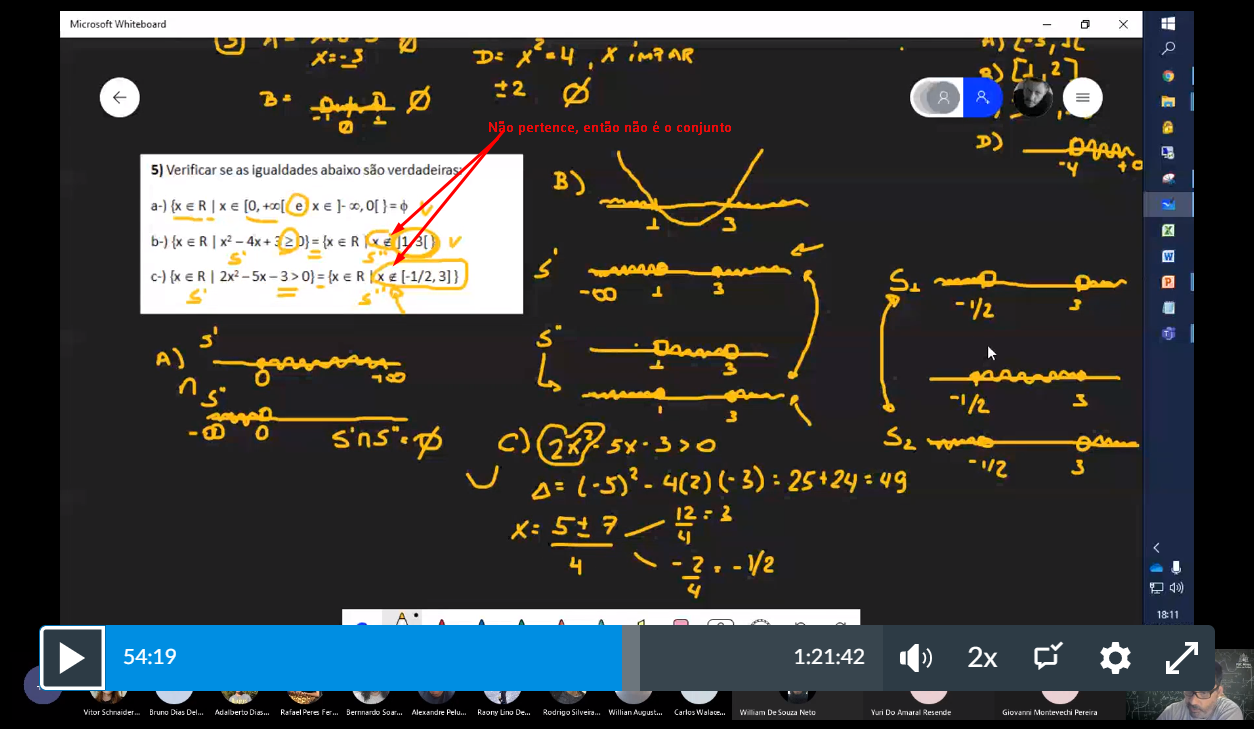 Microsoft Whiteboard
x=-3
∅
D= x²=4, x ímpar
±2 ∅
B=
∅
-1 0 1
B) [1, 2]
D)
-4 +∞
Não pertence, então não é o conjunto
5) Verificar se as igualdades abaixo são verdadeiras:
a-) {x ∈ R | x ∈ [0, +∞[ e x ∈ ]- ∞, 0[ } = ϕ V
b-) {x ∈ R | x² – 4x + 3 ≥ 0} = {x ∈ R | x ∉ ]1, 3[ } V
S' = S"
c-) {x ∈ R | 2x² – 5x – 3 > 0} = {x ∈ R | x ∉ [-1/2, 3] }
S' = S"
B)
1 3
S'
-∞ 1 3
S"
1 3
1 3
S1
-1/2 3
-1/2 3
S2
-1/2 3
A) S'
0 +∞
∩ S"
-∞ 0 S'∩S"=∅
C) 2x²-5x-3>0
Δ= (-5)² - 4(2)(-3) = 25+24 = 49
x= 5±7
4
12/4 = 3
-2/4 = -1/2
18:11
54:19
1:21:42
2x
Vitor Schnaider...
Bruno Dias Del...
Adalberto Dias...
Rafael Peres Fer...
Bernnardo Soar...
Alexandre Pelu...
Raony Lino De...
Rodrigo Silveira...
Willian August...
Carlos Walace...
William De Souza Neto
Yuri Do Amaral Resende
Giovanni Montevechi Pereira